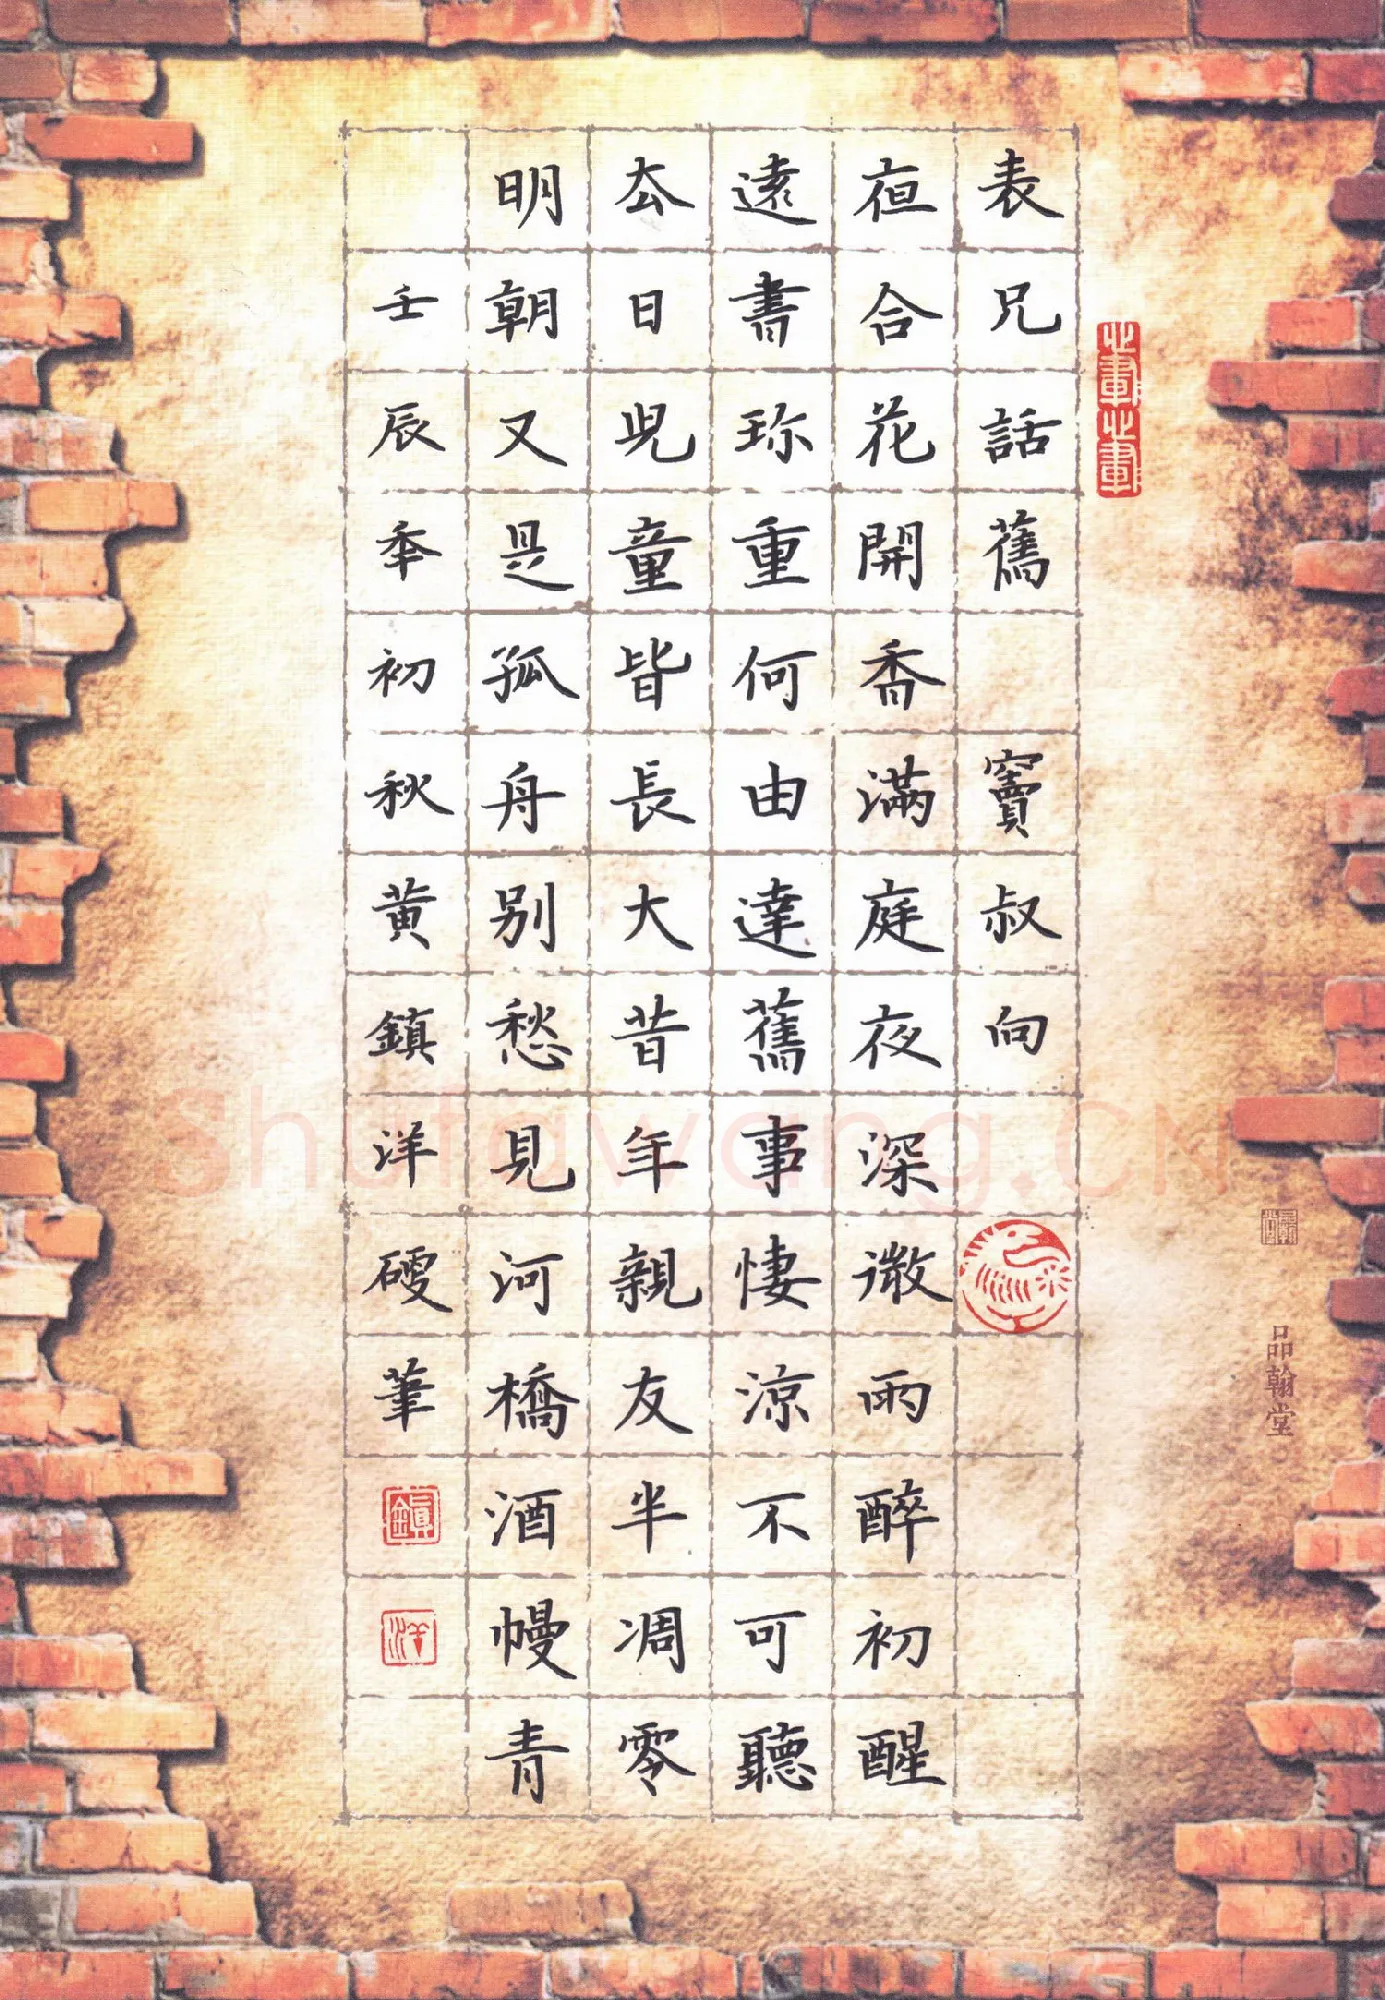 表兄話舊 竇叔向
夜合花開香滿庭夜深微雨醉初醒
遠書珎重何由達舊事悽涼不可聽
去日兒童皆長大昔年親友半凋零
明朝又是孤舟別愁見河橋酒幔青
壬辰年初秋黃鎮洋硬筆
鎮
洋
品翰堂
Shufawang.CN